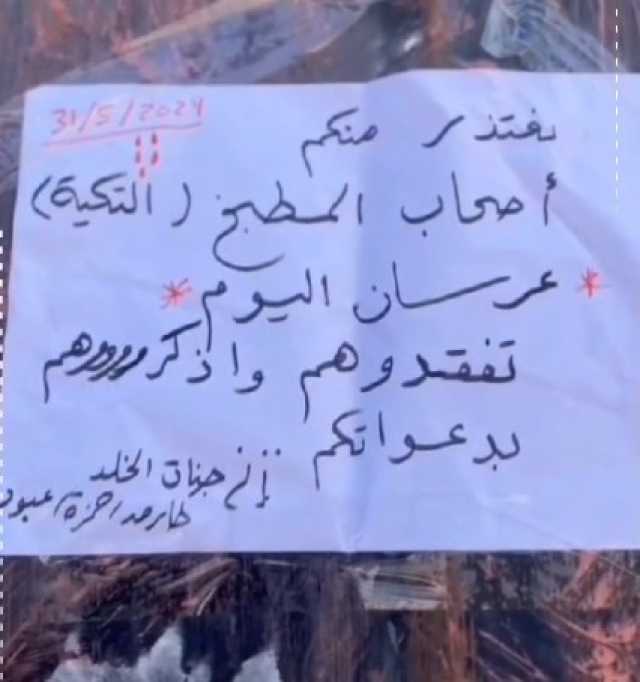 31/5/2024
يعتذر منكم
أصحاب المطبخ (التكية)
* عرسان اليوم *
تفقدوهم واذكروهم
بدعواتكم
جنات الخلد
حمزة / عبود